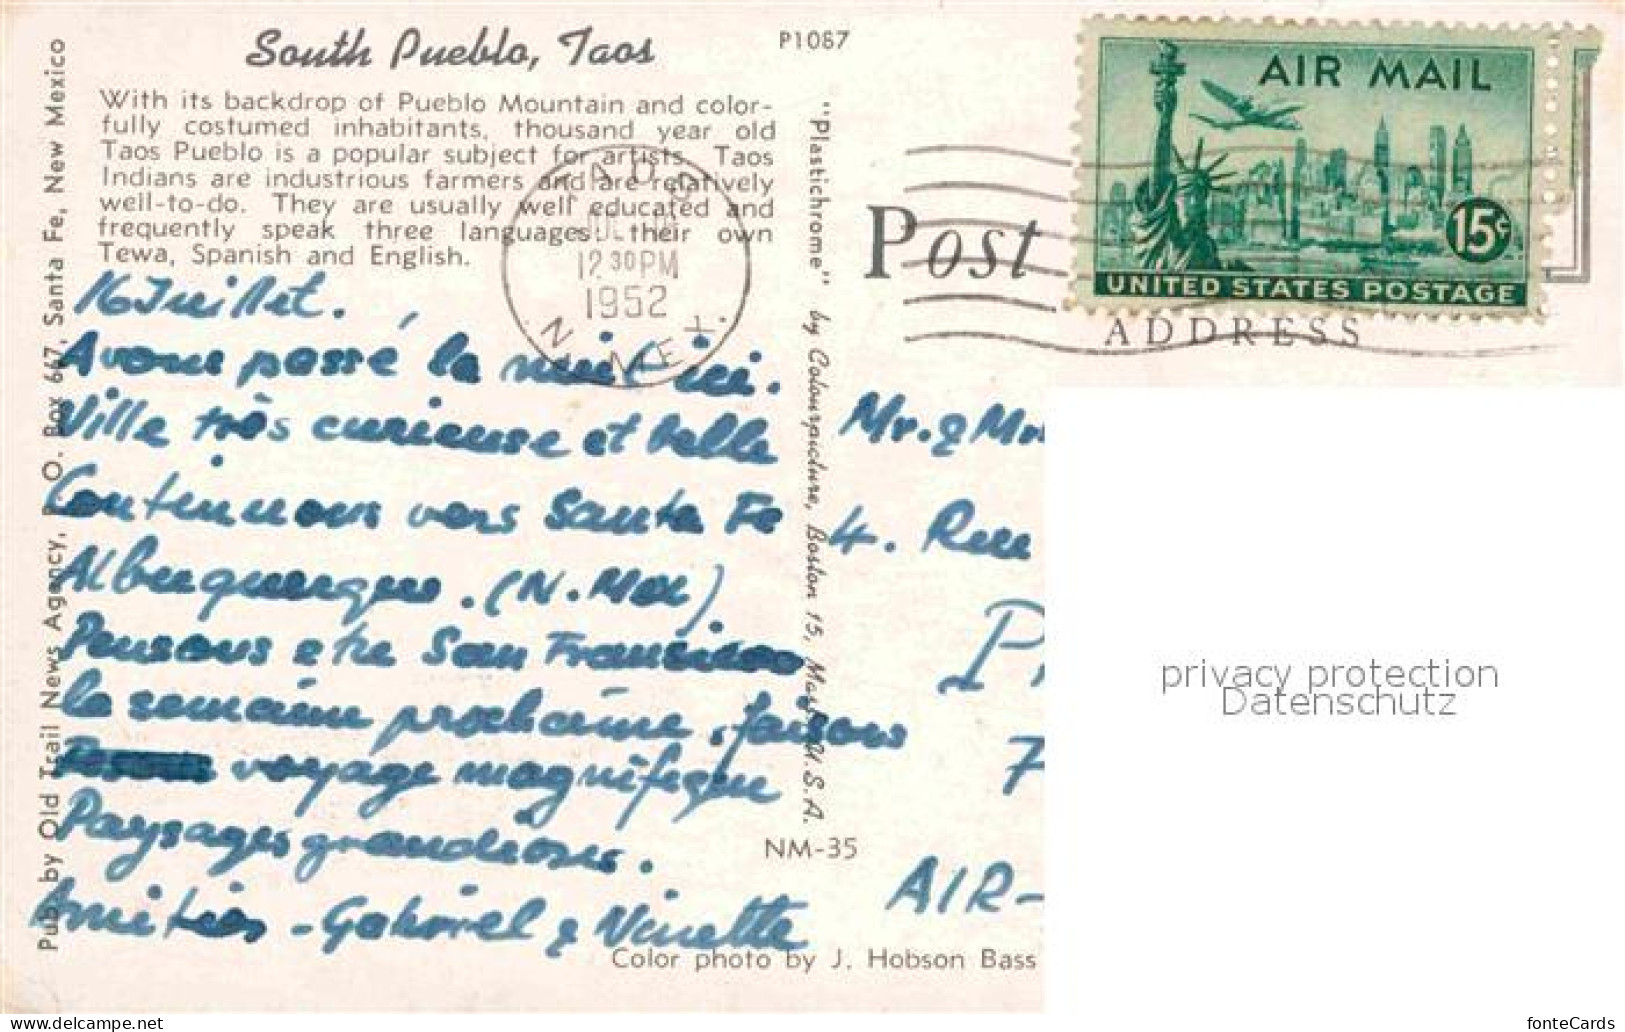 South Pueblo, Taos
P1087
With its backdrop of Pueblo Mountain and color-
fully costumed inhabitants, thousand year old
Taos Pueblo is a popular subject for artists. Taos
Indians are industrious farmers and are relatively
well-to-do. They are usually well educated and
frequently speak three languages: their own
Tewa, Spanish and English.
16 Juillet.
Avons passé la nuit ici.
Ville très curieuse et belle
Continuons vers Santa Fe
Alberquerque. (N. Mex)
Pensons etre San Francisco
la semaine prochaine, faisons
voyage magnifique
Paysages grandioses.
Amitiés - Gabriel & Ninette
Pub. by Old Trail News Agency, P. O. Box 667, Santa Fe, New Mexico
"Plastichrome" by Colourpicture, Boston 15, Mass., U.S.A.
NM-35
Color photo by J. Hobson Bass
TAOS
12 30 PM
1952
N. MEX.
AIR MAIL
15¢
UNITED STATES POSTAGE
Post
ADDRESS
Mr. & Mr
4. Rue
P
7
AIR-
privacy protection
Datenschutz
fonteCards